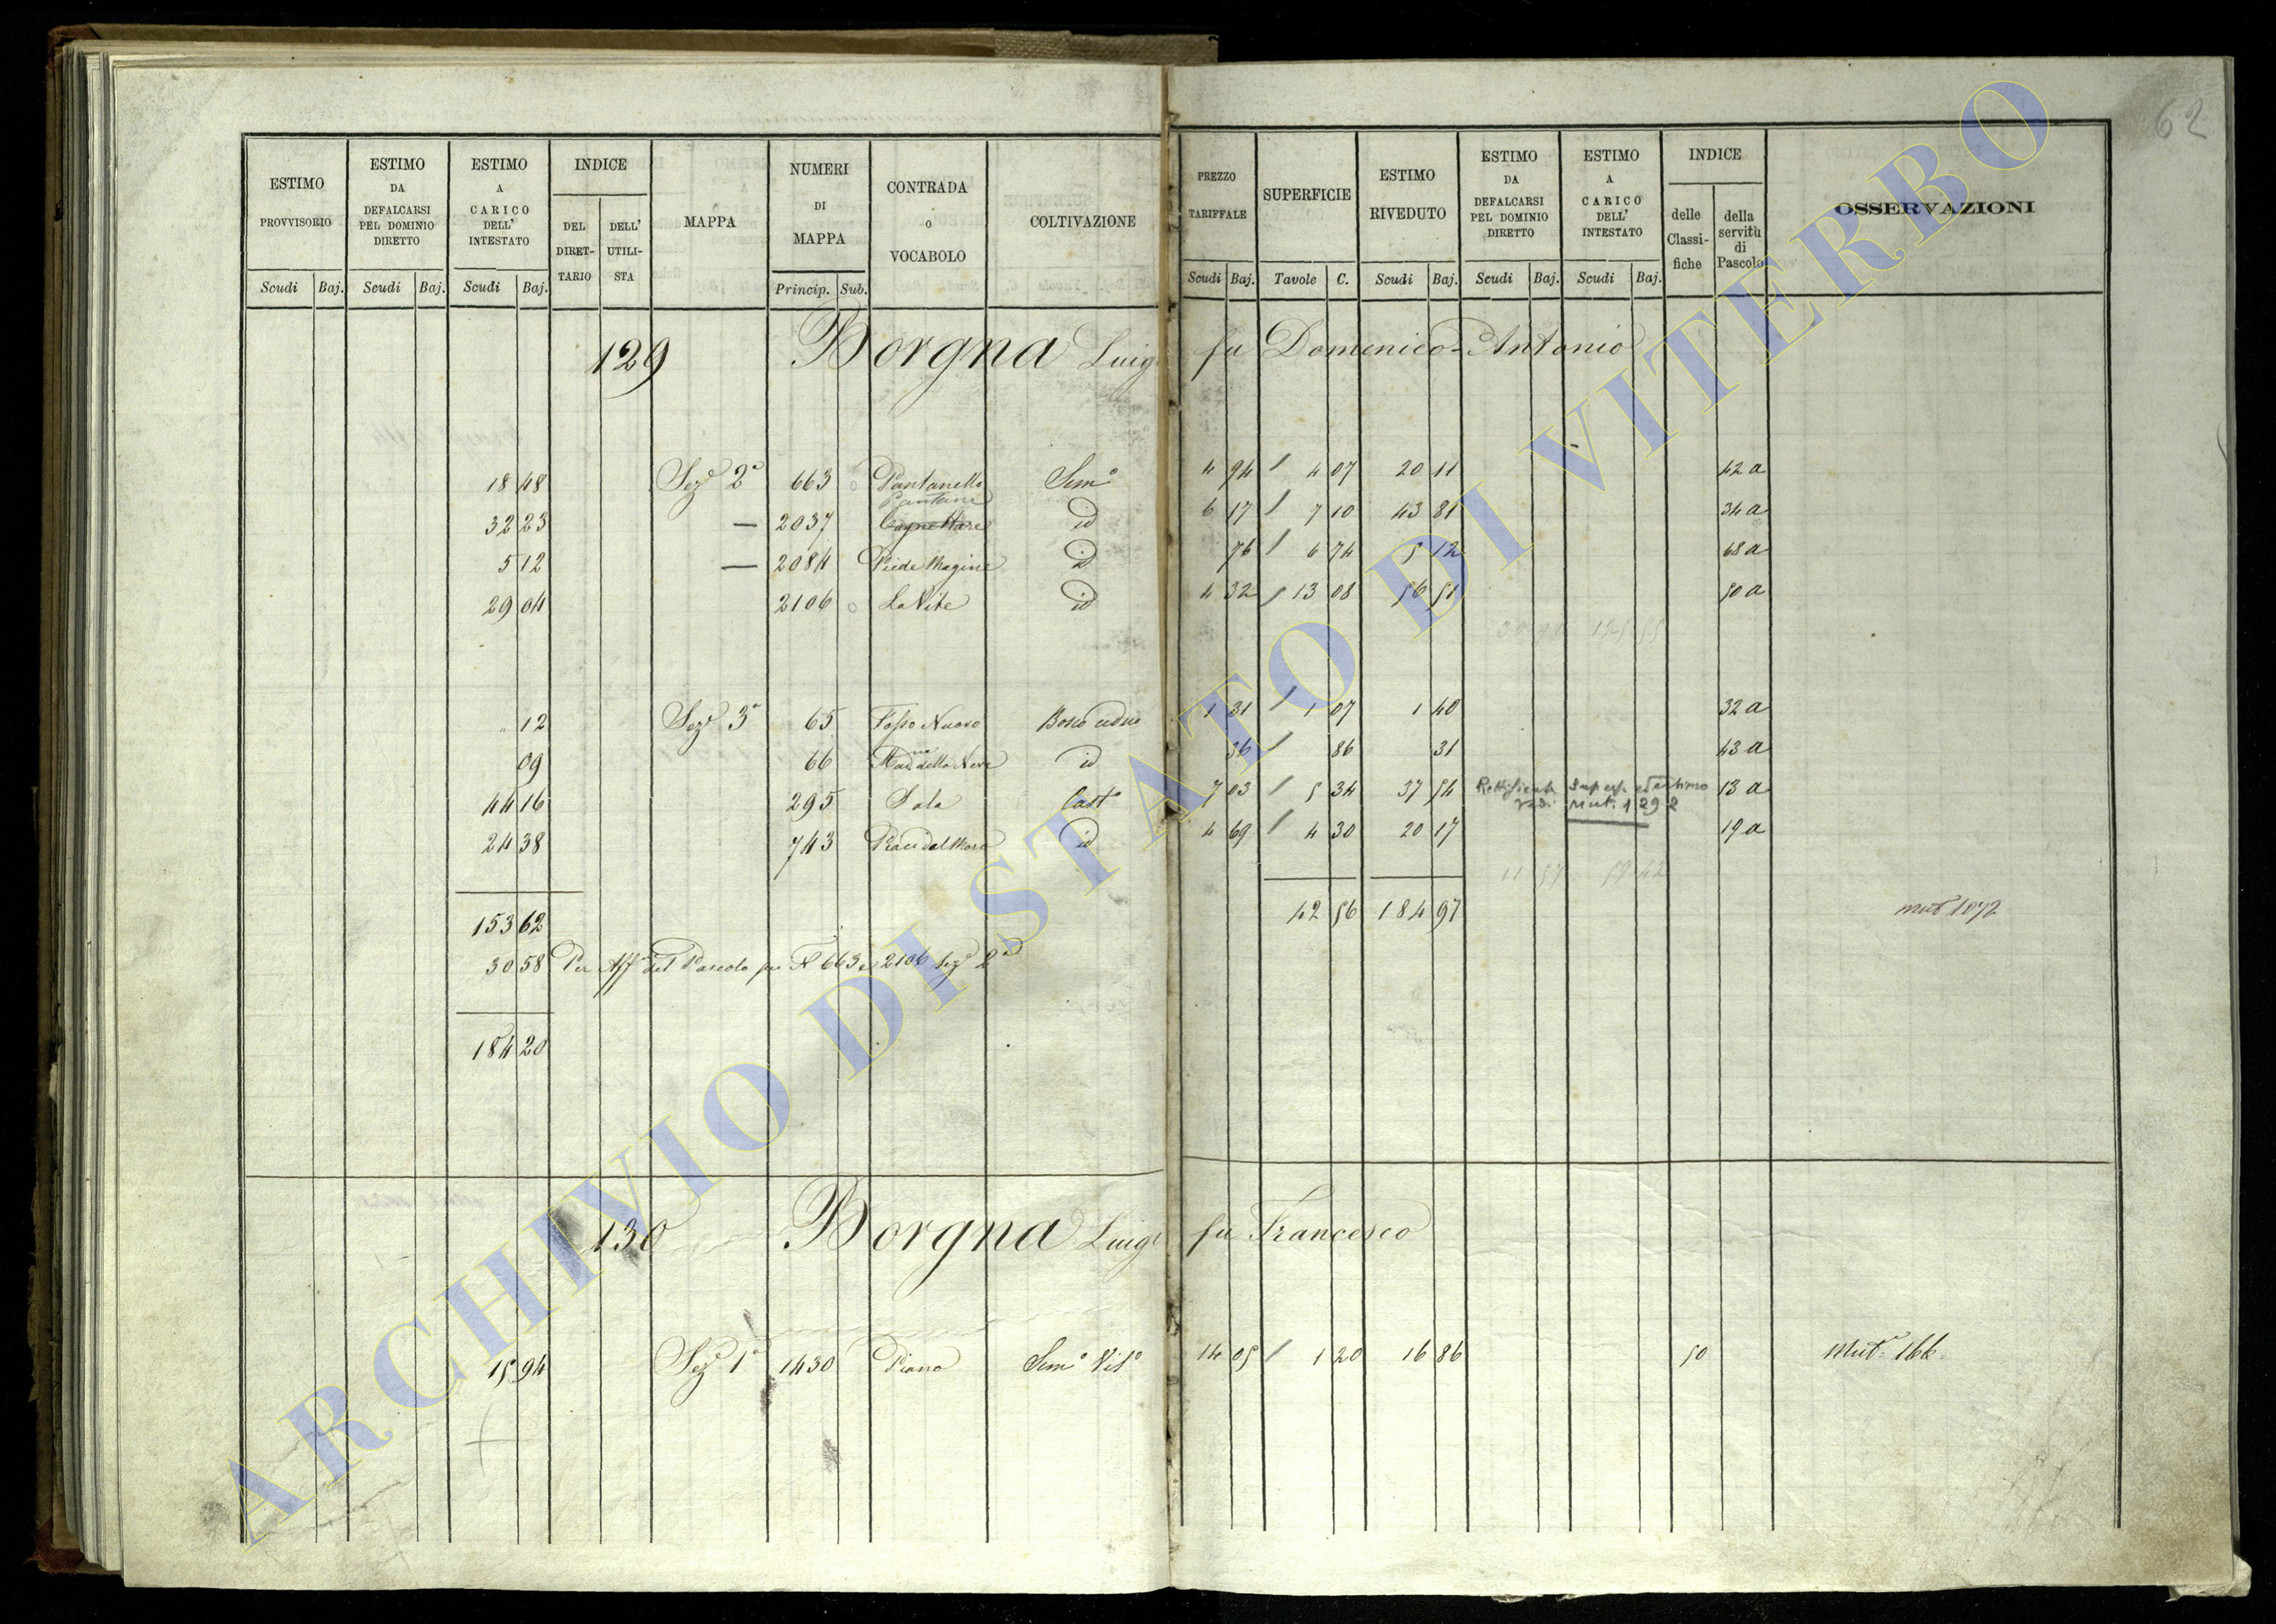 62
ESTIMO PROVVISORIO
ESTIMO DA DEFALCARSI PEL DOMINIO DIRETTO
ESTIMO A CARICO DELL' INTESTATO
INDICE
DEL DIRET-TARIO
DELL' UTILI-STA
MAPPA
NUMERI DI MAPPA
CONTRADA o VOCABOLO
COLTIVAZIONE
PREZZO TARIFFALE
SUPERFICIE
ESTIMO RIVEDUTO
ESTIMO DA DEFALCARSI PEL DOMINIO DIRETTO
ESTIMO A CARICO DELL' INTESTATO
INDICE
delle Classi-fiche
della servitù di Pascolo
OSSERVAZIONI
Scudi Baj. Scudi Baj. Scudi Baj. Princip. Sub. Scudi Baj. Tavole C. Scudi Baj. Scudi Baj. Scudi Baj.
129 Borgna Luigi fu Domenico-Antonio
18 48 Sez.e 2a 663 o Pantanella Sem.o 4 94 / 4 07 20 11 42 a
Pantane
32 23 — 2037 id 6 17 / 7 10 43 81 34 a
5 12 — 2084 Piede Magine id 76 / 6 74 5 12 68 a
29 04 2106 o La Vite id 4 32 / 13 08 56 51 50 a
12 Sez.e 3a 65 Fosso Nuovo Bosco ceduo 1 31 / 1 07 1 40 32 a
09 66 Mad.na della Neve id 36 / 86 31 43 a
44 16 295 Sala Cast.o 7 03 / 5 34 37 54 Rettificata Superf. ed estimo 13 a
vedi Mut. 1292
24 38 743 Piaci del Moro id 4 69 / 4 30 20 17 19 a
153 62 42 56 184 97 mut 1072
30 58 Per Aff. del Pascolo pei N. 663 e 2106 Sez.e 2a
184 20
130 Borgna Luigi fu Francesco
15 94 Sez.e 1a 1430 Piano Sem.o Vit.o 14 05 / 1 20 16 86 50 Mut.e 166
ARCHIVIO DI STATO DI VITERBO